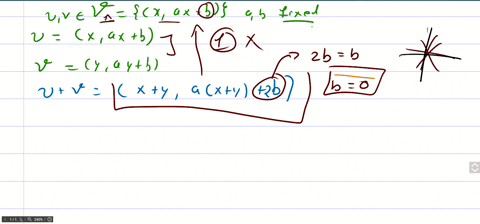 u, v ∈ V = {(x, ax+b)} a, b fixed
u = (x, ax+b) ] ① X
v = (y, ay+b) 2b = b
u + v = (x+y, a(x+y)+2b) b = 0